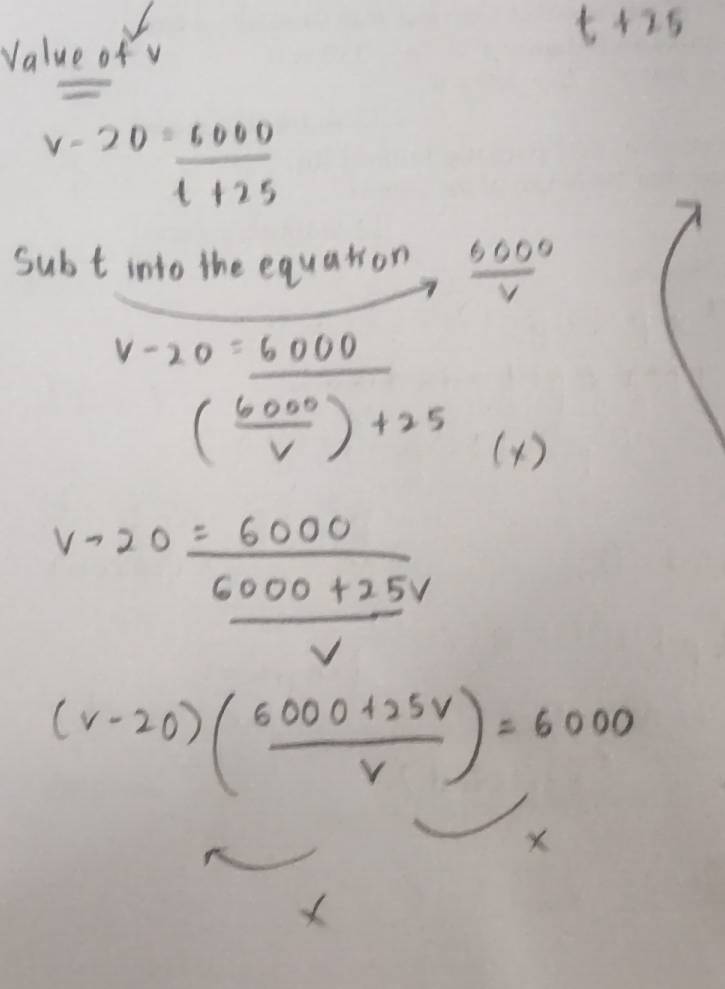 t + 25
Value of v
v - 20 = 6000
t + 25
Sub t into the equation 6000
v
v - 20 = 6000
( 6000 / v ) + 25 (x)
v - 20 = 6000
6000 + 25v
v
(v - 20) ( 6000 + 25v / v ) = 6000
x
x